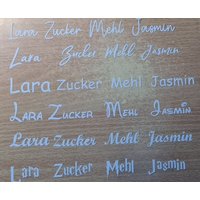 Lara Zucker Mehl Jasmin
Lara Zucker Mehl Jasmin
Lara Zucker Mehl Jasmin
Lara Zucker Mehl Jasmin
Lara Zucker Mehl Jasmin
Lara Zucker Mehl Jasmin